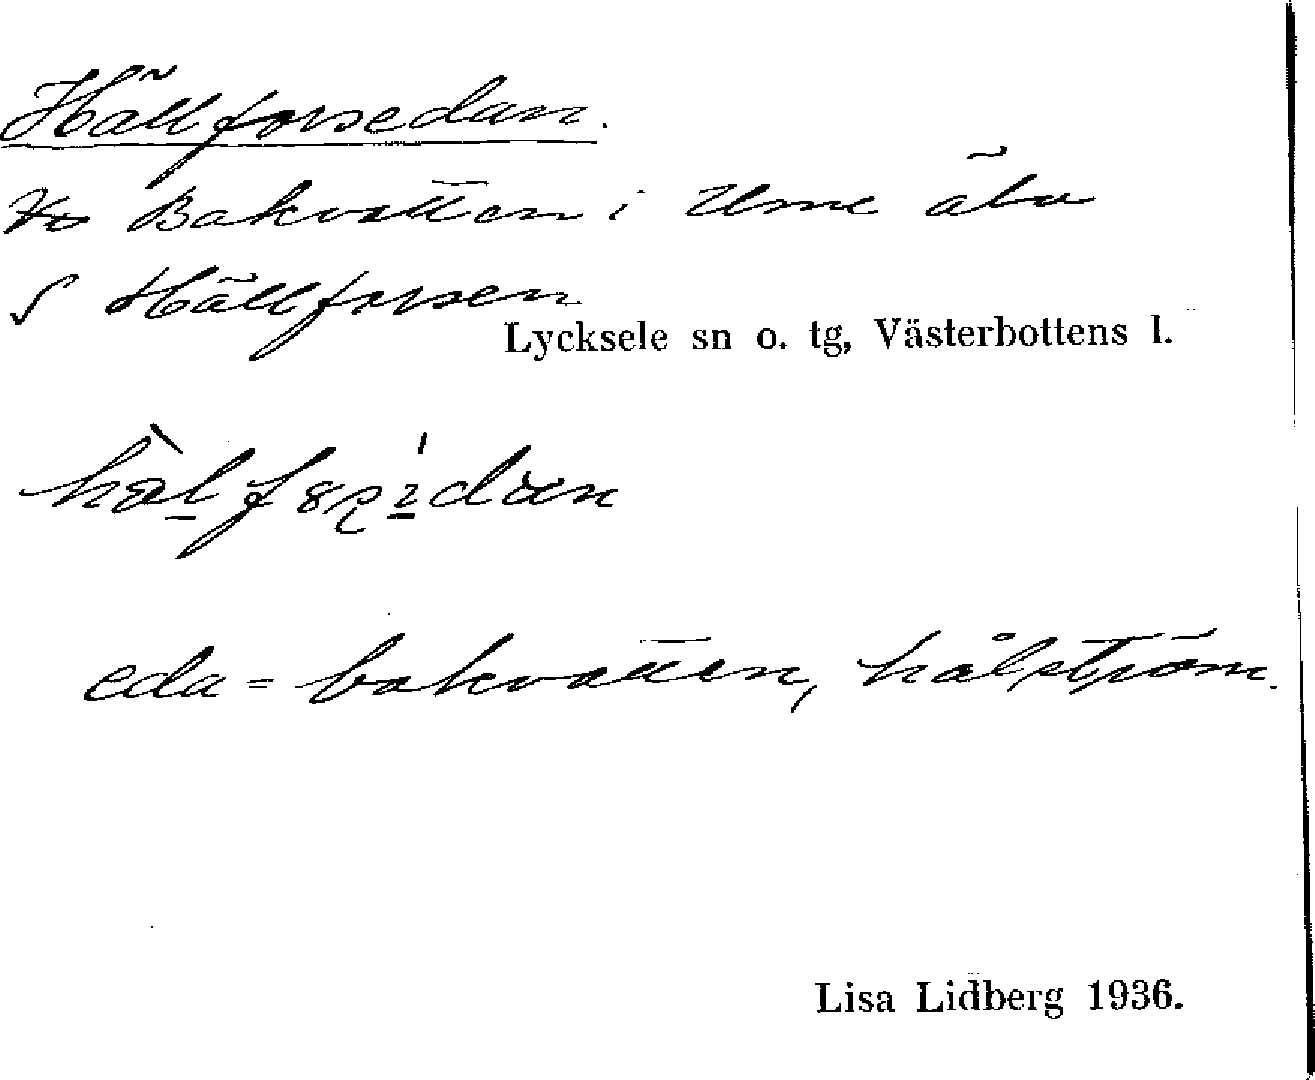 Hällforsedan.
Bakvatten i Ume älv
S Hällforsen
Lycksele sn o. tg, Västerbottens l.
eda = bakvatten, hålström.
Lisa Lidberg 1936.